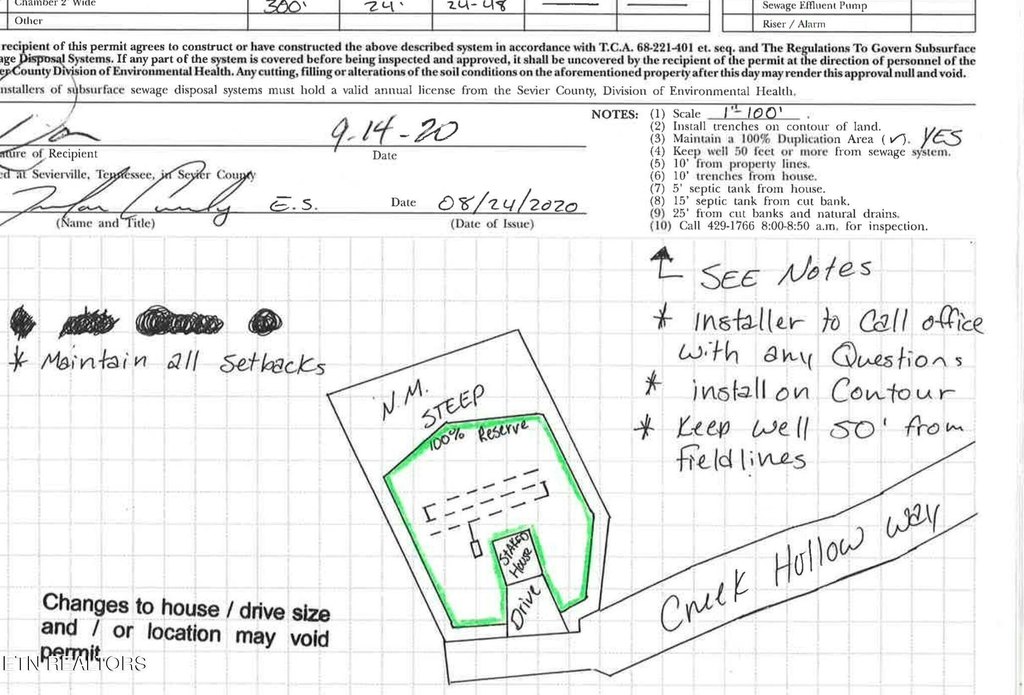 Chamber 2' Wide 300' 24" 24-48 — —
Sewage Effluent Pump
Other
Riser / Alarm
recipient of this permit agrees to construct or have constructed the above described system in accordance with T.C.A. 68-221-401 et. seq. and The Regulations To Govern Subsurface
age Disposal Systems. If any part of the system is covered before being inspected and approved, it shall be uncovered by the recipient of the permit at the direction of personnel of the
er County Division of Environmental Health. Any cutting, filling or alterations of the soil conditions on the aforementioned property after this day may render this approval null and void.
nstallers of subsurface sewage disposal systems must hold a valid annual license from the Sevier County, Division of Environmental Health.
9-14-20
ature of Recipient
Date
ed at Sevierville, Tennessee, in Sevier County
E.S.
Date 08/24/2020
(Name and Title)
(Date of Issue)
NOTES: (1) Scale 1"-100'.
(2) Install trenches on contour of land.
(3) Maintain a 100% Duplication Area (✓). YES
(4) Keep well 50 feet or more from sewage system.
(5) 10' from property lines.
(6) 10' trenches from house.
(7) 5' septic tank from house.
(8) 15' septic tank from cut bank.
(9) 25' from cut banks and natural drains.
(10) Call 429-1766 8:00-8:50 a.m. for inspection.
SEE Notes
* Installer to Call office
with any Questions
* install on Contour
* Keep well 50' from
fieldlines
* Maintain all Setbacks
N.M.
STEEP
100% Reserve
STAKED
House
Drive
Creek Hollow Way
Changes to house / drive size
and / or location may void
permit
ETN REALTORS